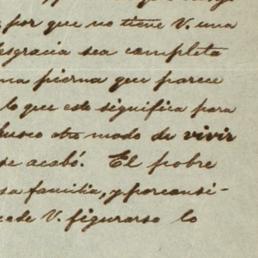 por que no tiene V. una
desgracia sea completa
una pierna que parece
lo que esto significa para
busco otro modo de vivir
se acabó. El pobre
sa familia, y porconsi-
ede V. figurarse lo